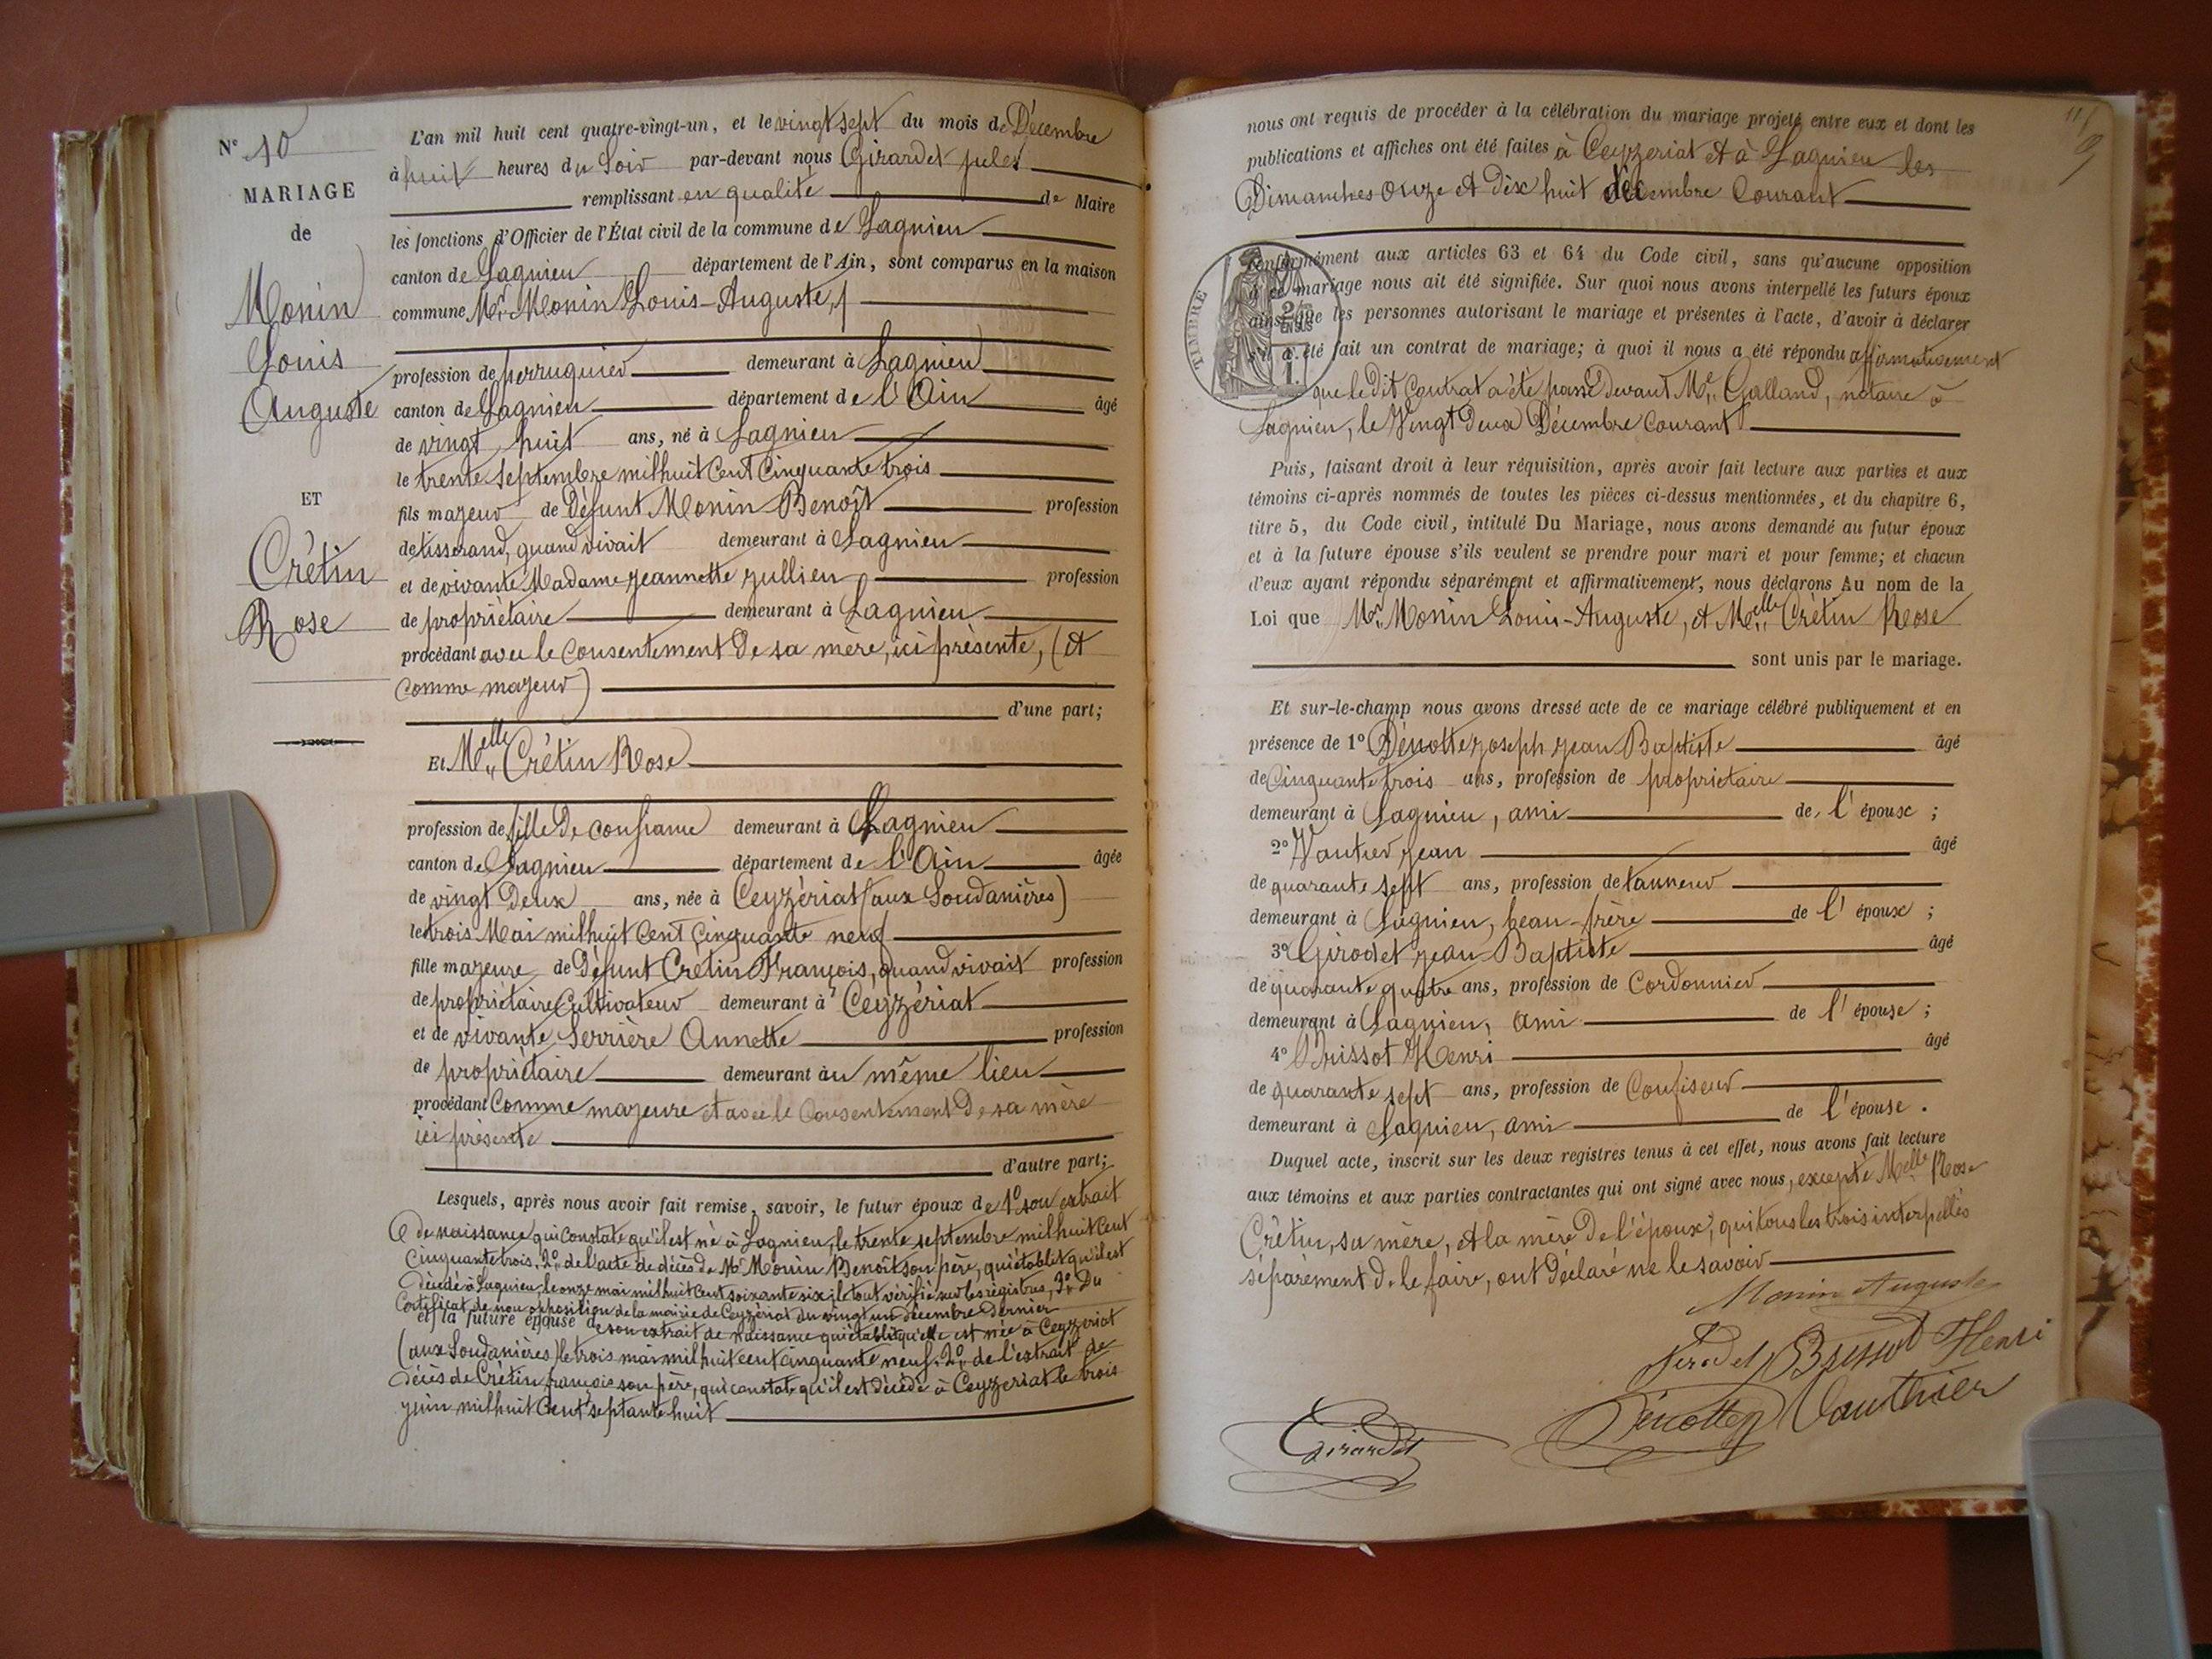 N° 10
MARIAGE
de
Monin
Louis
Auguste
ET
Crétin
Rose
L'an mil huit cent quatre-vingt-un, et le vingt sept du mois de Décembre
à huit heures du Soir par-devant nous Girardet jules
remplissant en qualité de Maire
les fonctions d'Officier de l'État civil de la commune de Lagnieu
canton de Lagnieu département de l'Ain, sont comparus en la maison
commune Mr. Monin Louis-Auguste,
profession de perruquier demeurant à Lagnieu
canton de Lagnieu département de l'Ain âgé
de vingt huit ans, né à Lagnieu
le trente Septembre mil huit Cent Cinquante trois
fils majeur de Défunt Monin Benoît profession
de tisserand, quand vivait demeurant à Lagnieu
et de vivante Madame jeannette jullien profession
de propriétaire demeurant à Lagnieu
procédant avec le Consentement De sa mère, ici présente, (et
comme majeur)
d'une part;
Et Melle Crétin Rose
profession de fille De confiance demeurant à Lagnieu
canton de Lagnieu département de l'Ain âgée
de vingt Deux ans, née à Ceyzériat (aux Soudanières)
le trois Mai mil huit Cent Cinquante neuf
fille majeure de Défunt Crétin François, quand vivait profession
de propriétaire Cultivateur demeurant à Céyzériat
et de vivante Serrière Annette profession
de propriétaire demeurant au même lieu
procédant Comme majeure et avec le Consentement De sa mère
ici présente
d'autre part;
Lesquels, après nous avoir fait remise, savoir, le futur époux de 1° son extrait
de naissance qui constate qu'il est né à Lagnieu, le trente septembre mil huit cent
Cinquante trois, 2° de l'acte de décès de Mr Monin Benoît son père, qui établit qu'il est
décédé à Lagnieu, le onze mai mil huit Cent soixante six, le tout vérifié sur les régistres, 3° Du
Certificat de non opposition de la mairie de Ceyzériat du vingt un décembre dernier
et la future épouse de son extrait de naissance qui établit qu'elle est née à Ceyzeriat
(aux Soudanières) le trois mai mil huit cent cinquante neuf. 2° de l'extrait de
décès de Crétin françois son père, qui constate qu'il est décédé à Ceyzeriat le trois
juin mil huit Cent septante huit
nous ont requis de procéder à la célébration du mariage projeté entre eux et dont les
publications et affiches ont été faites à Ceyzeriat et à Lagnieu les
Dimanches onze et dix huit décembre Courant
TIMBRE
conformément aux articles 63 et 64 du Code civil, sans qu'aucune opposition
à ce mariage nous ait été signifiée. Sur quoi nous avons interpellé les futurs époux
ainsi que les personnes autorisant le mariage et présentes à l'acte, d'avoir à déclarer
s'il a été fait un contrat de mariage; à quoi il nous a été répondu affirmativement
que le Dit Contrat a été passé devant Me Galland, notaire à
Lagnieu, le Vingt Deux Décembre Courant
Puis, faisant droit à leur réquisition, après avoir fait lecture aux parties et aux
témoins ci-après nommés de toutes les pièces ci-dessus mentionnées, et du chapitre 6,
titre 5, du Code civil, intitulé Du Mariage, nous avons demandé au futur époux
et à la future épouse s'ils veulent se prendre pour mari et pour femme; et chacun
d'eux ayant répondu séparément et affirmativement, nous déclarons Au nom de la
Loi que Mr. Monin Louis-Auguste, et Melle Crétin Rose
sont unis par le mariage.
Et sur-le-champ nous avons dressé acte de ce mariage célébré publiquement et en
présence de 1° Dénotte joseph jean Baptiste âgé
de Cinquante trois ans, profession de propriétaire
demeurant à Lagnieu, ami de l'épouse;
2° Vautier jean âgé
de quarante sept ans, profession de tanneur
demeurant à Lagnieu, beau-frère de l'époux;
3° Girodet jean Baptiste âgé
de quarante quatre ans, profession de Cordonnier
demeurant à Lagnieu, ami de l'épouse;
4° Brissot Henri âgé
de quarante sept ans, profession de Confiseur
demeurant à Lagnieu, ami de l'épouse.
Duquel acte, inscrit sur les deux registres tenus à cet effet, nous avons fait lecture
aux témoins et aux parties contractantes qui ont signé avec nous, excepté Melle Rose
Crétin, sa mère, et la mère De l'époux, qui tous les trois interpellés
séparément de le faire, ont déclaré ne le savoir
Monin Auguste
Girodet Brissot Henri
Dénotte Vauthier
Girardet